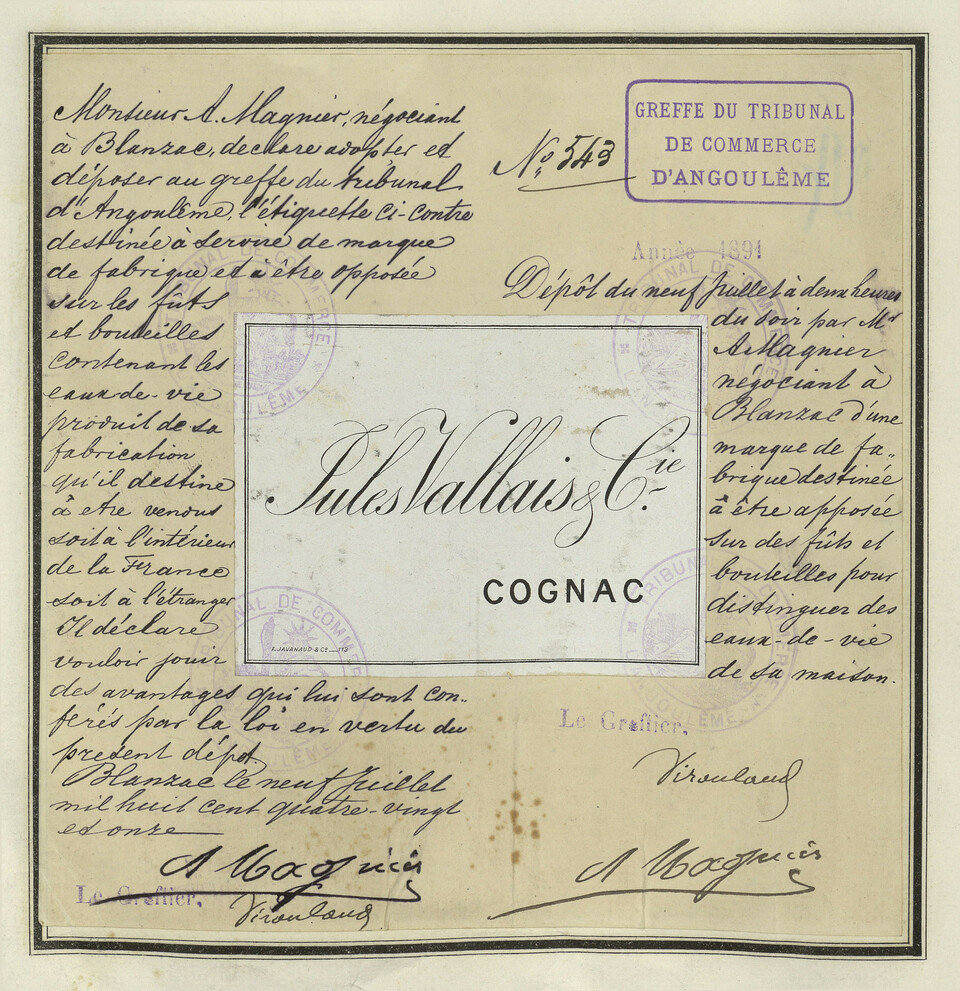 Monsieur A. Magnier, négociant
à Blanzac, déclare adopter et
déposer au greffe du tribunal
d'Angoulême, l'étiquette ci-contre
destinée à servire de marque
de fabrique et à être opposée
sur les fûts
et bouteilles
contenant les
eaux-de-vie
produit de sa
fabrication
qu'il destine
à etre vendus
soit à l'intérieur
de la France
soit à l'étranger
Il déclare
vouloir jouir
des avantages qui lui sont con-
férés par la loi en vertu du
présent dépot.
Blanzac le neuf Juillet
mil huit cent quatre-vingt
et onze
A Magnier
Le Greffier,
Viroulaud
No. 543
GREFFE DU TRIBUNAL
DE COMMERCE
D'ANGOULÊME
Année 1891
Dépôt du neuf Juillet à deux heures
du soir par Mr
A. Magnier
négociant à
Blanzac d'une
marque de fa-
brique destinée
à être apposée
sur des fûts et
bouteilles pour
distinguer des
eaux-de-vie
de sa maison.
Le Greffier,
Viroulaud
A Magnier
Jules Vallais & Cie.
COGNAC
F. JAVANAUD & Co. 113
TRIBUNAL DE COMMERCE
ANGOULÊME
TRIBUNAL DE COMMERCE
TRIBUNAL DE COMMERCE
ANGOULÊME
TRIBUNAL DE COMMERCE
ANGOULÊME